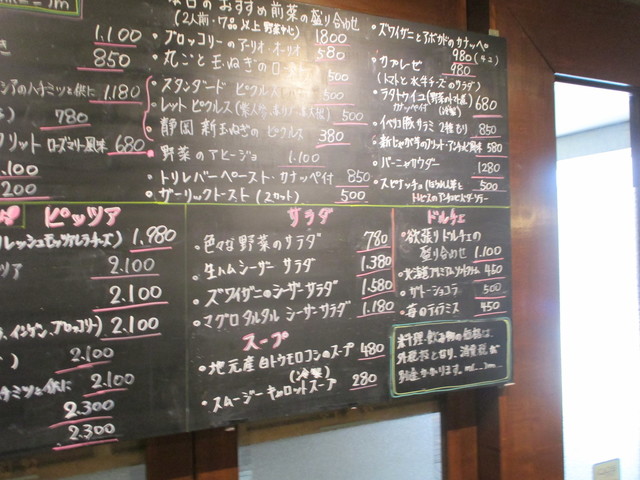 1.100
850
1.180
780
ローズマリー風味 680
.100
200
のおすすめ前菜の盛り合わせ
(2人前・7品以上 野菜中心) 1800
・ブロッコリーのアーリオ・オーリオ 580
・丸ごと玉ねぎのロースト 500
・スタンダード ピクルス 500
・レットピクルス 500
・静岡 新玉ねぎの ピクルス 380
・野菜のアヒージョ 1.100
・トリレバーペースト・カナッペ付 850
・ガーリックトースト (2カット) 500
・ズワイガニとアボカドのカナッペ
980
・カプレーゼ 980
(トマトと水牛チーズのサラダ)
・ラタトゥイユ 680
・イベリコ豚サラミ 2種もり 850
580
・バーニャカウダー 1280
500
ピッツア
レッシュモッツァレラチーズ) 1.980
ツア 2.100
2.100
、インゲン、ブロッコリー) 2.100
2.100
ハチミツと供に 2.100
2.300
2.300
サラダ
・色々な野菜のサラダ 780
・生ハムシーザー サラダ 1.380
・ズワイガニのシーザーサラダ 1.580
・マグロタルタル シーザーサラダ 1.180
スープ
・地元産白トウモロコシのスープ 480
(冷製)
・スムージー キャロットスープ 280
ドルチェ
・欲張りドルチェの
盛り合わせ 1.100
・北海道プレミアムソフトクリーム 450
・ガトーショコラ 500
・苺のティラミス 450
※料理・飲み物の価格は、
外税となり、消費税が
別途かかります。